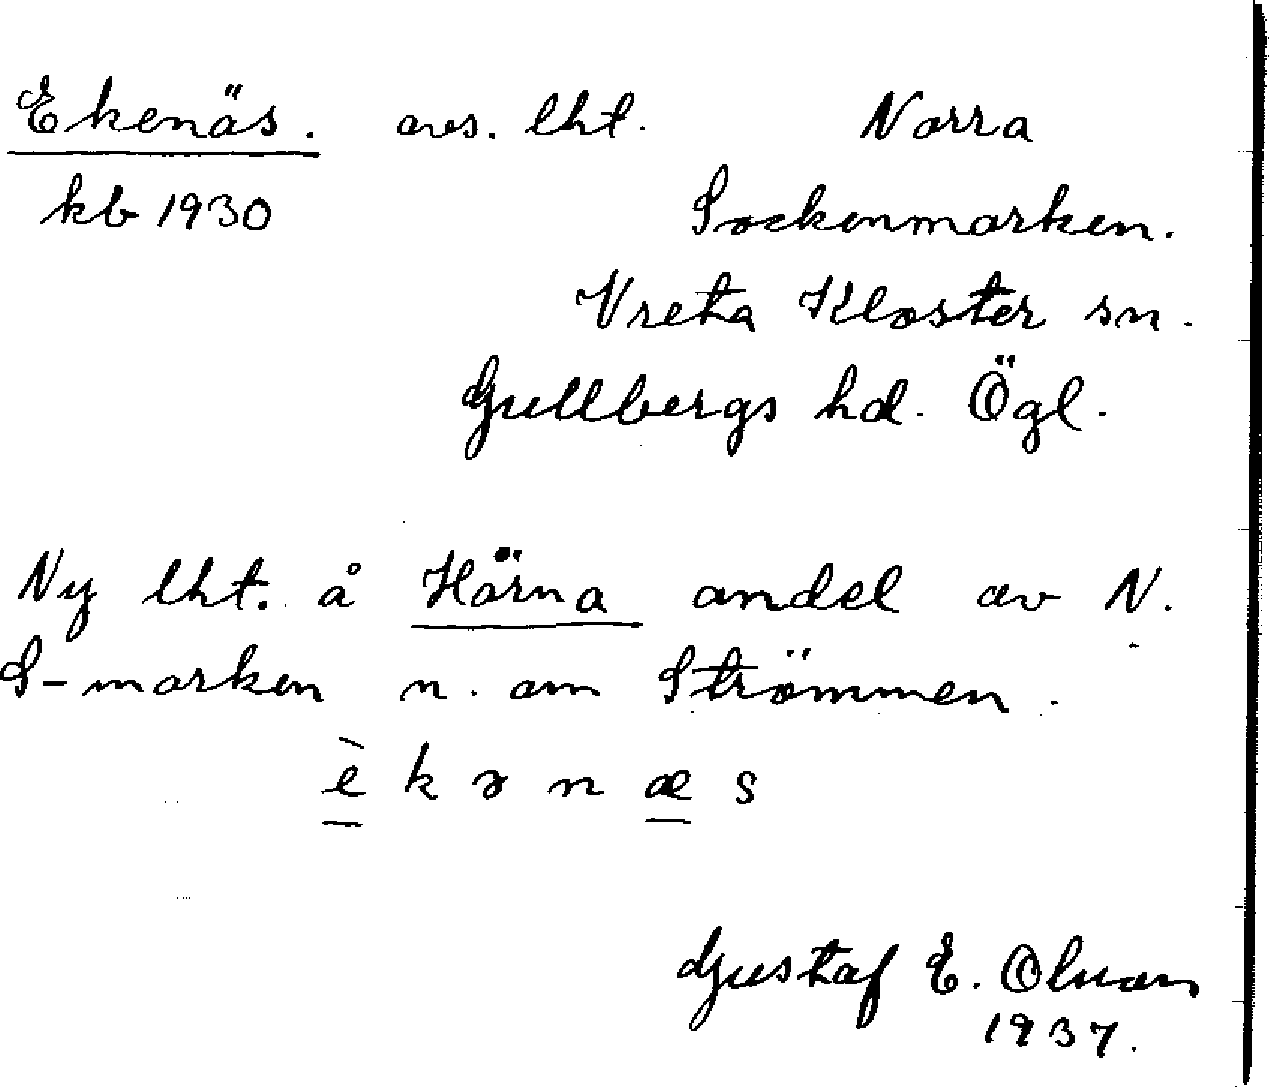 Ekenäs. avs. lht. Norra
kb 1930 Sockenmarken.
Vreta Kloster sn.
Gullbergs hd. Ögl.
Ny lht. å Hörna andel av N.
S-marken n. om Strömmen.
è k ə n æ s
Gustaf E. Olsson
1937.